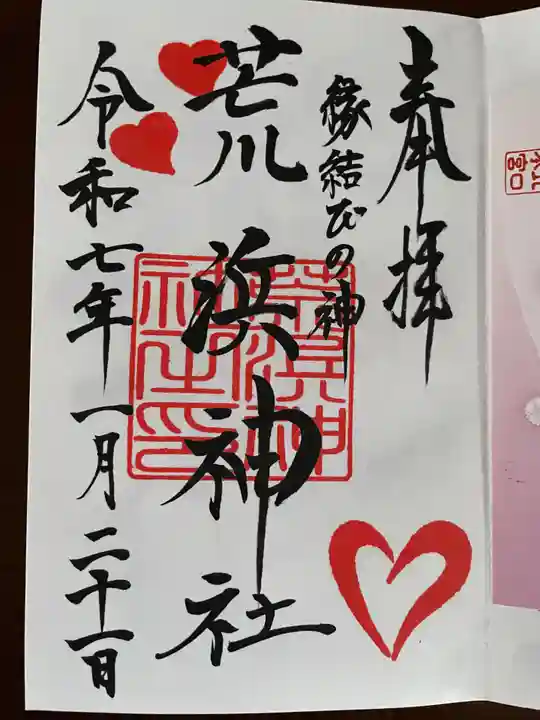 奉拝
縁結びの神
荒浜神社
令和七年一月二十一日